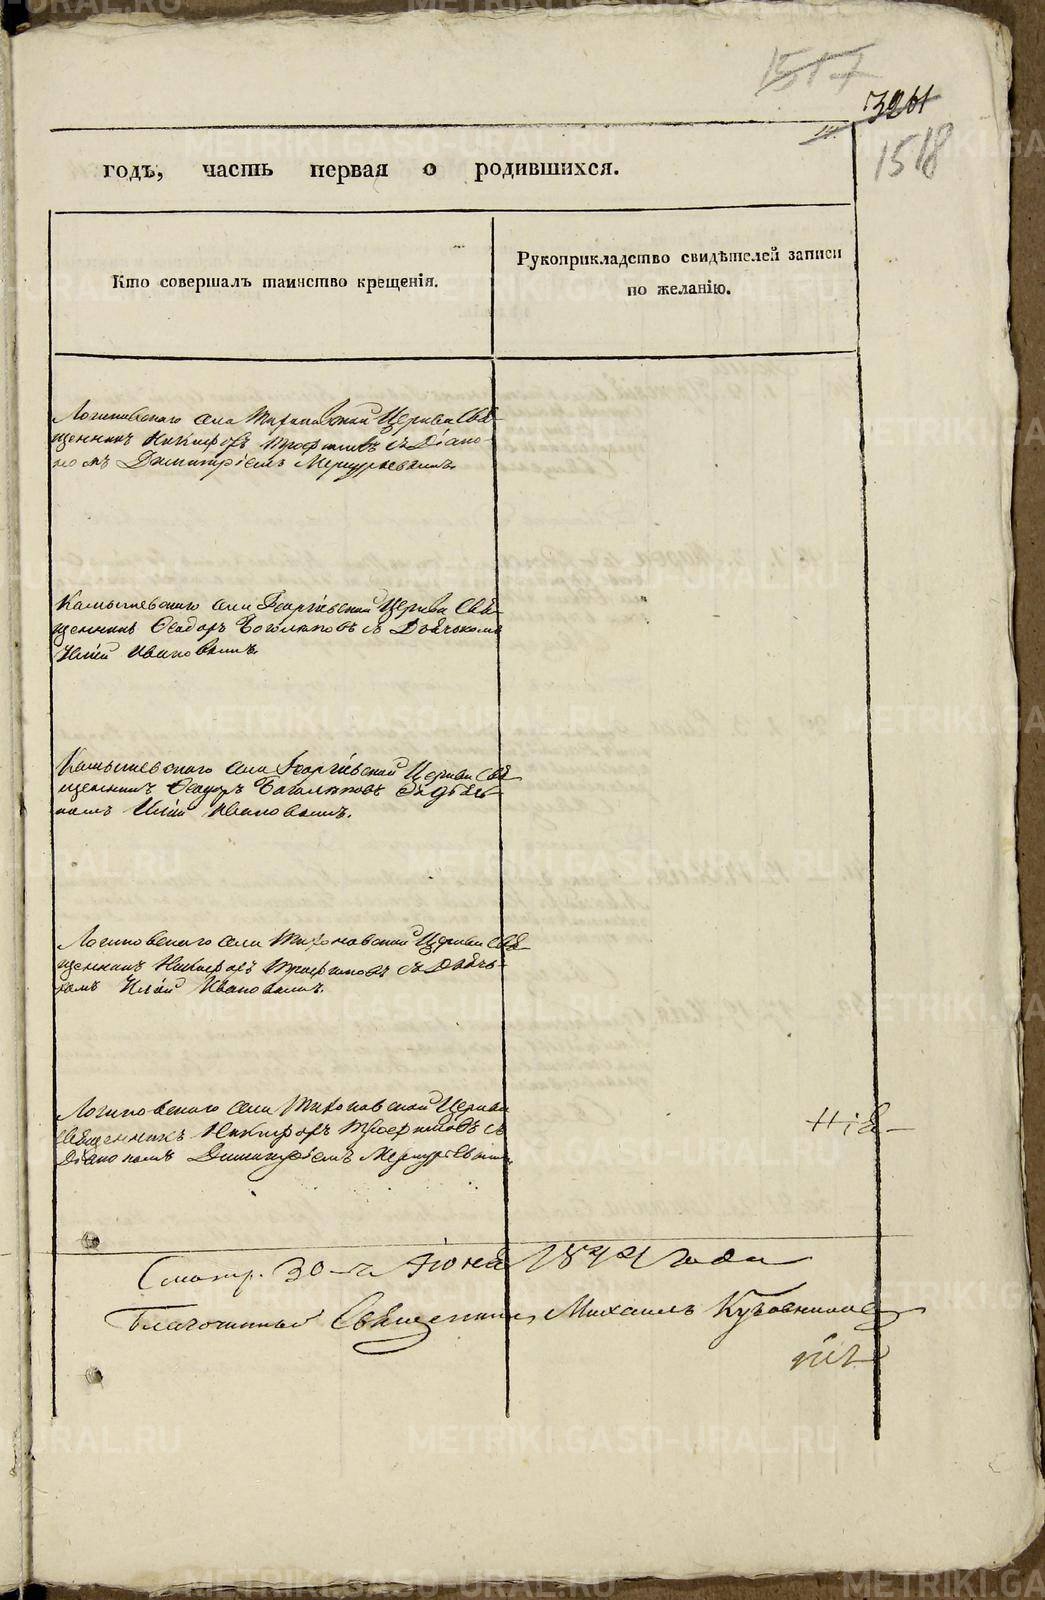 1517
3261
1518
годъ, часть первая о родившихся.
Кто совершалъ таинство крещенія.
Рукоприкладство свидѣтелей записи
по желанію.
Логиновскаго села Тихоновской Церкви Свя-
щенникъ Никифоръ Трофимовъ съ Діако-
номъ Димитріемъ Меркурьевымъ
Камышевскаго села Георгіевской Церкви Свя-
щенникъ Ѳеодоръ Боголѣповъ съ Дьячкомъ
Иліей Ивановымъ.
Камышевскаго села Георгіевской Церкви Свя-
щенникъ Ѳеодоръ Боголѣповъ съ дьяч-
комъ Иліей Ивановымъ.
Логиновскаго села Тихоновской Церкви Свя-
щенникъ Никифоръ Трофимовъ съ Дьяч-
комъ Иліей Ивановымъ.
Логиновскаго села Тихоновской Церкви
Священникъ Никифоръ Трофимовъ съ
Діакономъ Димитріемъ Меркурьевымъ
Смотр. 30-го Іюня года
Благочинный Священникъ Михаилъ